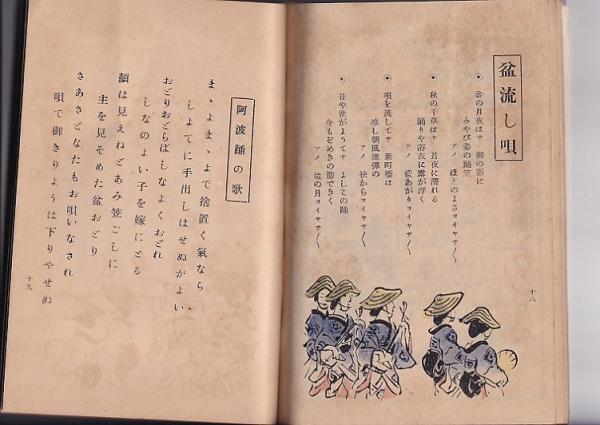 盆流し唄
盆の月夜はサ 柳の影に
みやび姿の踊笠
アノ ほどのよさヨイヤサノ〱
秋の千草はサ 月夜に濡れる
踊りや浴衣に露が浮く
アノ 藍あがりヨイヤサノ〱
唄を流してサ 新町橋は
凉し朝風連彈の
アノ 袂からヨイヤサノ〱
昔や世がようてサ よしこの踊
今もぞめきの節できく
アノ 盆の月ヨイヤサノ〱
十八
阿波踊の歌
まゝよまゝよまで捨置く氣なら
しよてに手出しはせぬがよい
おどりおどらばしなよくおどれ
しなのよい子を嫁にとる
顏は見えねどあみ笠ごしに
主を見そめた盆おどり
さあさどなたもお唄いなされ
唄て御きりようは下りやせぬ
十九